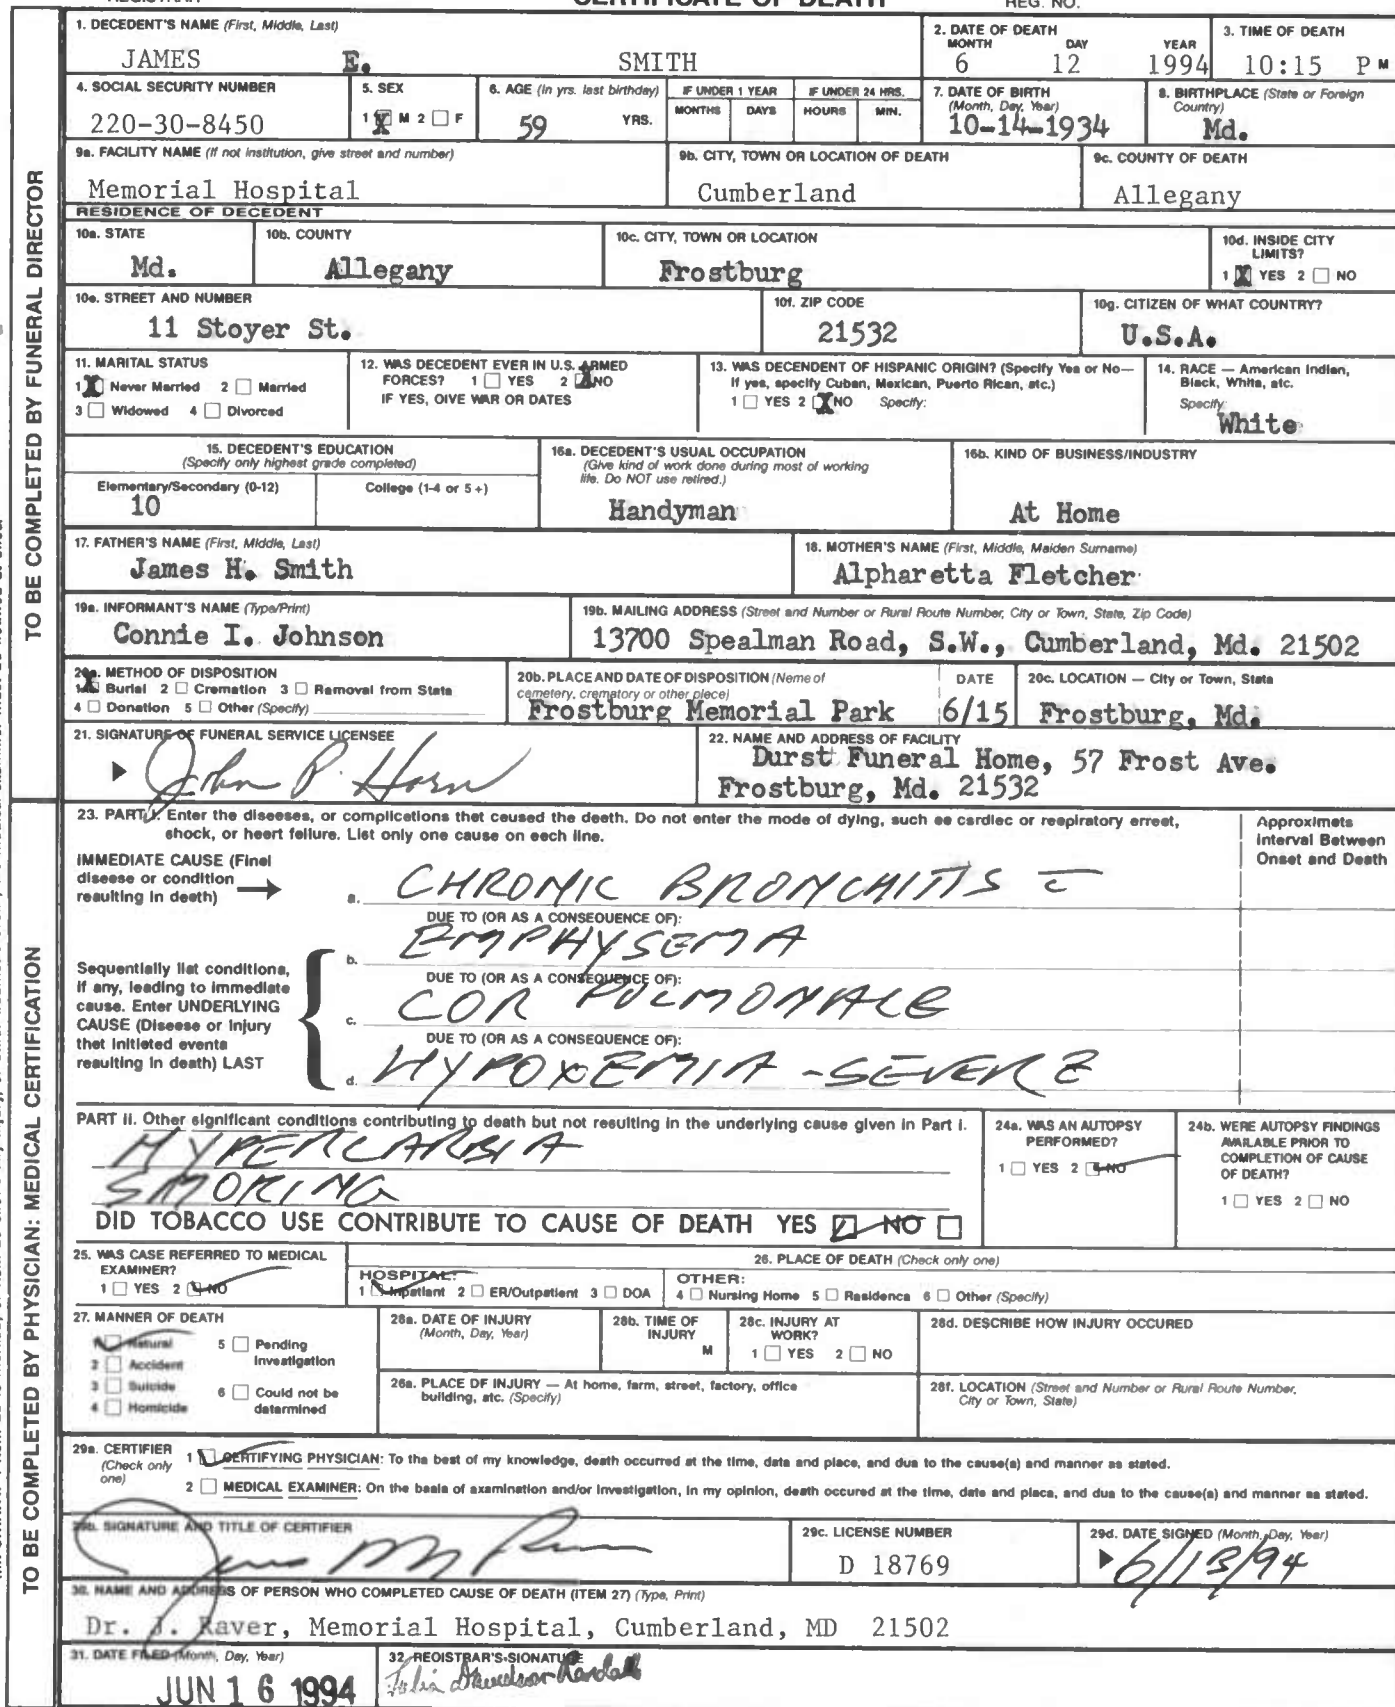 CERTIFICATE OF DEATH
REG. NO.
1. DECEDENT'S NAME (First, Middle, Last)
JAMES E. SMITH
2. DATE OF DEATH
MONTH DAY YEAR
6 12 1994
3. TIME OF DEATH
10:15 P M
4. SOCIAL SECURITY NUMBER
220-30-8450
5. SEX
1 X M 2 F
6. AGE (In yrs. last birthday)
59 YRS.
IF UNDER 1 YEAR
MONTHS DAYS
IF UNDER 24 HRS.
HOURS MIN.
7. DATE OF BIRTH
(Month, Day, Year)
10-14-1934
8. BIRTHPLACE (State or Foreign
Country)
Md.
9a. FACILITY NAME (If not institution, give street and number)
Memorial Hospital
9b. CITY, TOWN OR LOCATION OF DEATH
Cumberland
9c. COUNTY OF DEATH
Allegany
RESIDENCE OF DECEDENT
10a. STATE
Md.
10b. COUNTY
Allegany
10c. CITY, TOWN OR LOCATION
Frostburg
10d. INSIDE CITY
LIMITS?
1 X YES 2 NO
10e. STREET AND NUMBER
11 Stoyer St.
10f. ZIP CODE
21532
10g. CITIZEN OF WHAT COUNTRY?
U.S.A.
11. MARITAL STATUS
1 X Never Married 2 Married
3 Widowed 4 Divorced
12. WAS DECEDENT EVER IN U.S. ARMED
FORCES? 1 YES 2 X NO
IF YES, GIVE WAR OR DATES
13. WAS DECENDENT OF HISPANIC ORIGIN? (Specify Yes or No—
If yes, specify Cuban, Mexican, Puerto Rican, etc.)
1 YES 2 X NO Specify:
14. RACE — American Indian,
Black, White, etc.
Specify:
White
15. DECEDENT'S EDUCATION
(Specify only highest grade completed)
Elementary/Secondary (0-12)
10
College (1-4 or 5+)
16a. DECEDENT'S USUAL OCCUPATION
(Give kind of work done during most of working
life. Do NOT use retired.)
Handyman
16b. KIND OF BUSINESS/INDUSTRY
At Home
17. FATHER'S NAME (First, Middle, Last)
James H. Smith
18. MOTHER'S NAME (First, Middle, Maiden Surname)
Alpharetta Fletcher
19a. INFORMANT'S NAME (Type/Print)
Connie I. Johnson
19b. MAILING ADDRESS (Street and Number or Rural Route Number, City or Town, State, Zip Code)
13700 Spealman Road, S.W., Cumberland, Md. 21502
20a. METHOD OF DISPOSITION
1 X Burial 2 Cremation 3 Removal from State
4 Donation 5 Other (Specify)
20b. PLACE AND DATE OF DISPOSITION (Name of
cemetery, crematory or other place)
Frostburg Memorial Park
DATE
6/15
20c. LOCATION — City or Town, State
Frostburg, Md.
21. SIGNATURE OF FUNERAL SERVICE LICENSEE
John P. Horn
22. NAME AND ADDRESS OF FACILITY
Durst Funeral Home, 57 Frost Ave.
Frostburg, Md. 21532
TO BE COMPLETED BY FUNERAL DIRECTOR
23. PART I. Enter the diseases, or complications that caused the death. Do not enter the mode of dying, such as cardiac or respiratory arrest,
shock, or heart failure. List only one cause on each line.
Approximate
Interval Between
Onset and Death
IMMEDIATE CAUSE (Final
disease or condition
resulting in death)
a. CHRONIC BRONCHITIS c̄
DUE TO (OR AS A CONSEQUENCE OF):
b. EMPHYSEMA
DUE TO (OR AS A CONSEQUENCE OF):
c. COR PULMONALE
DUE TO (OR AS A CONSEQUENCE OF):
d. HYPOXEMIA - SEVERE
Sequentially list conditions,
if any, leading to immediate
cause. Enter UNDERLYING
CAUSE (Disease or injury
that initiated events
resulting in death) LAST
PART II. Other significant conditions contributing to death but not resulting in the underlying cause given in Part I.
HYPERCARBIA
SMOKING
DID TOBACCO USE CONTRIBUTE TO CAUSE OF DEATH YES NO
24a. WAS AN AUTOPSY
PERFORMED?
1 YES 2 NO
24b. WERE AUTOPSY FINDINGS
AVAILABLE PRIOR TO
COMPLETION OF CAUSE
OF DEATH?
1 YES 2 NO
25. WAS CASE REFERRED TO MEDICAL
EXAMINER?
1 YES 2 NO
26. PLACE OF DEATH (Check only one)
HOSPITAL:
1 Inpatient 2 ER/Outpatient 3 DOA
OTHER:
4 Nursing Home 5 Residence 6 Other (Specify)
27. MANNER OF DEATH
1 Natural
2 Accident
3 Suicide
4 Homicide
5 Pending
Investigation
6 Could not be
determined
28a. DATE OF INJURY
(Month, Day, Year)
28b. TIME OF
INJURY
M
28c. INJURY AT
WORK?
1 YES 2 NO
28d. DESCRIBE HOW INJURY OCCURED
28e. PLACE OF INJURY — At home, farm, street, factory, office
building, etc. (Specify)
28f. LOCATION (Street and Number or Rural Route Number,
City or Town, State)
29a. CERTIFIER
(Check only
one)
1 CERTIFYING PHYSICIAN: To the best of my knowledge, death occurred at the time, date and place, and due to the cause(s) and manner as stated.
2 MEDICAL EXAMINER: On the basis of examination and/or investigation, in my opinion, death occured at the time, date and place, and due to the cause(s) and manner as stated.
29b. SIGNATURE AND TITLE OF CERTIFIER
29c. LICENSE NUMBER
D 18769
29d. DATE SIGNED (Month, Day, Year)
6/13/94
30. NAME AND ADDRESS OF PERSON WHO COMPLETED CAUSE OF DEATH (ITEM 27) (Type, Print)
Dr. J. Raver, Memorial Hospital, Cumberland, MD 21502
31. DATE FILED (Month, Day, Year)
JUN 16 1994
32. REGISTRAR'S SIGNATURE
TO BE COMPLETED BY PHYSICIAN: MEDICAL CERTIFICATION